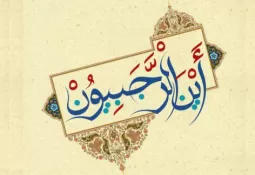 أَيْنَ الرَّجَبِيُونْ